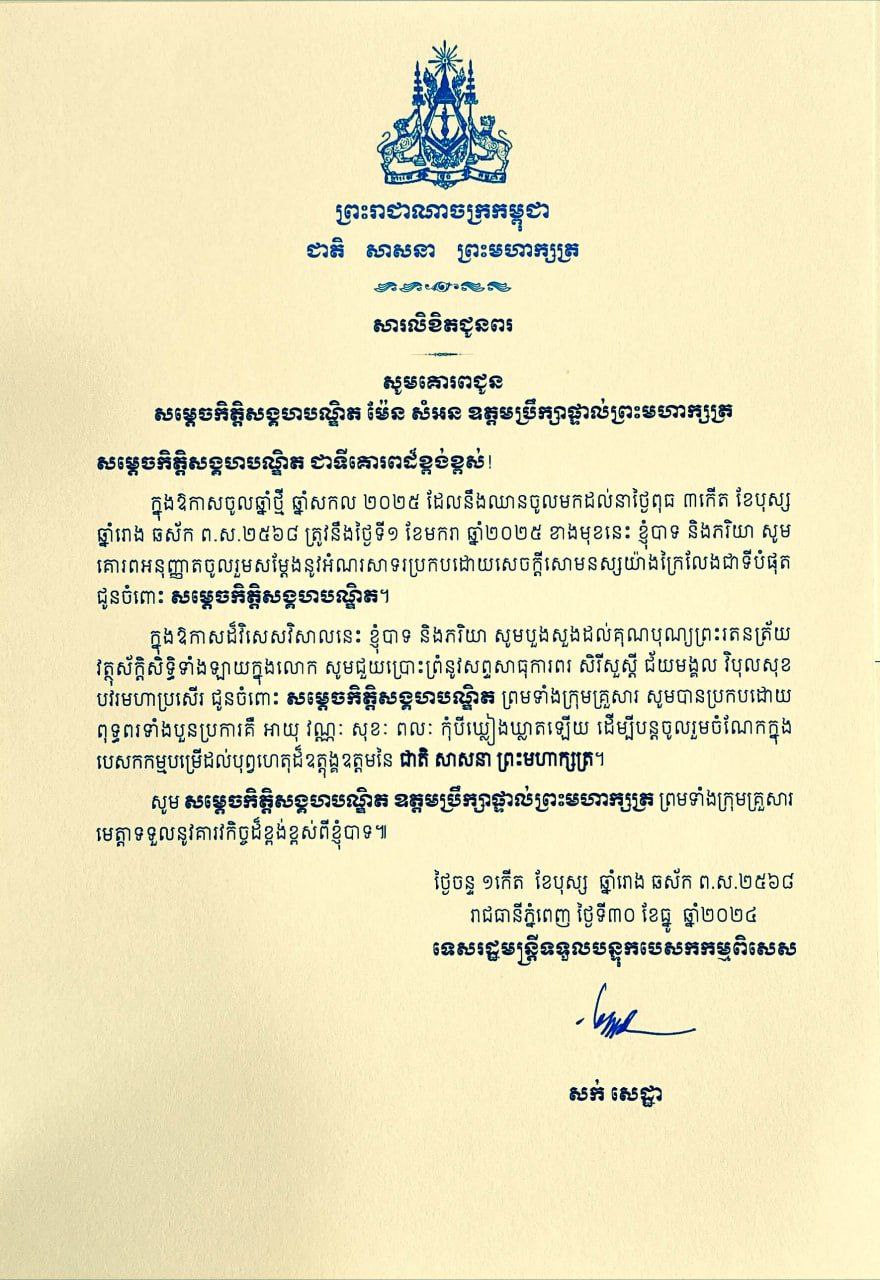 ព្រះរាជាណាចក្រកម្ពុជា
ជាតិ សាសនា ព្រះមហាក្សត្រ
សារលិខិតជូនពរ
សូមគោរពជូន
សម្តេចកិត្តិសង្គហបណ្ឌិត ម៉ែន សំអន ឧត្តមប្រឹក្សាផ្ទាល់ព្រះមហាក្សត្រ
សម្តេចកិត្តិសង្គហបណ្ឌិត ជាទីគោរពដ៏ខ្ពង់ខ្ពស់!
ក្នុងឱកាសចូលឆ្នាំថ្មី ឆ្នាំសកល ២០២៥ ដែលនឹងឈានចូលមកដល់នាថ្ងៃពុធ ៣កើត ខែបុស្ស
ឆ្នាំរោង ឆស័ក ព.ស.២៥៦៨ ត្រូវនឹងថ្ងៃទី១ ខែមករា ឆ្នាំ២០២៥ ខាងមុខនេះ ខ្ញុំបាទ និងភរិយា សូម
គោរពអនុញ្ញាតចូលរួមសម្តែងនូវអំណរសាទរប្រកបដោយសេចក្តីសោមនស្សយ៉ាងក្រៃលែងជាទីបំផុត
ជូនចំពោះ សម្តេចកិត្តិសង្គហបណ្ឌិត។
ក្នុងឱកាសដ៏វិសេសវិសាលនេះ ខ្ញុំបាទ និងភរិយា សូមបួងសួងដល់គុណបុណ្យព្រះរតនត្រ័យ
វត្ថុស័ក្តិសិទ្ធិទាំងឡាយក្នុងលោក សូមជួយប្រោះព្រំនូវសព្ទសាធុការពរ សិរីសួស្តី ជ័យមង្គល វិបុលសុខ
បវរមហាប្រសើរ ជូនចំពោះ សម្តេចកិត្តិសង្គហបណ្ឌិត ព្រមទាំងក្រុមគ្រួសារ សូមបានប្រកបដោយ
ពុទ្ធពរទាំងបួនប្រការគឺ អាយុ វណ្ណៈ សុខៈ ពលៈ កុំបីឃ្លៀងឃ្លាតឡើយ ដើម្បីបន្តចូលរួមចំណែកក្នុង
បេសកកម្មបម្រើដល់បុព្វហេតុដ៏ឧត្តុង្គឧត្តមនៃ ជាតិ សាសនា ព្រះមហាក្សត្រ។
សូម សម្តេចកិត្តិសង្គហបណ្ឌិត ឧត្តមប្រឹក្សាផ្ទាល់ព្រះមហាក្សត្រ ព្រមទាំងក្រុមគ្រួសារ
មេត្តាទទួលនូវគារវកិច្ចដ៏ខ្ពង់ខ្ពស់ពីខ្ញុំបាទ៕
ថ្ងៃចន្ទ ១កើត ខែបុស្ស ឆ្នាំរោង ឆស័ក ព.ស.២៥៦៨
រាជធានីភ្នំពេញ ថ្ងៃទី៣០ ខែធ្នូ ឆ្នាំ២០២៤
ទេសរដ្ឋមន្ត្រីទទួលបន្ទុកបេសកកម្មពិសេស
សក់ សេដ្ឋា